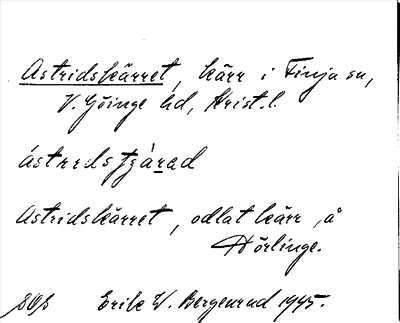 Astridskärret, kärr i Finja sn,
V. Göinge hd, Krist.l.
Astridskärret, odlat kärr, å
Hörlinge.
Erik W. Bergenrud 1945.